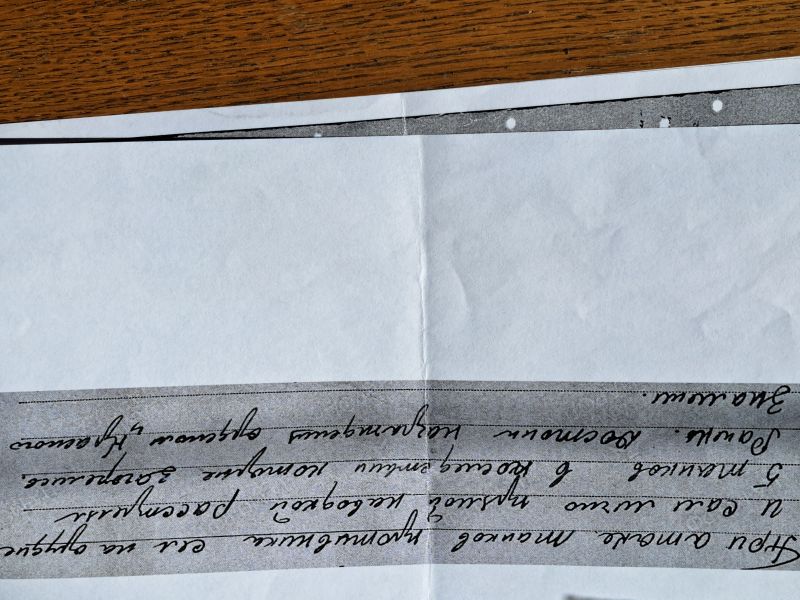 При атаке танков противника сел на орудие
и сам лично прямой наводкой расстрелял
5 танков в последствии которые загорелись.
Ранен. Достоин награждения орденом „Красного
Знамени.